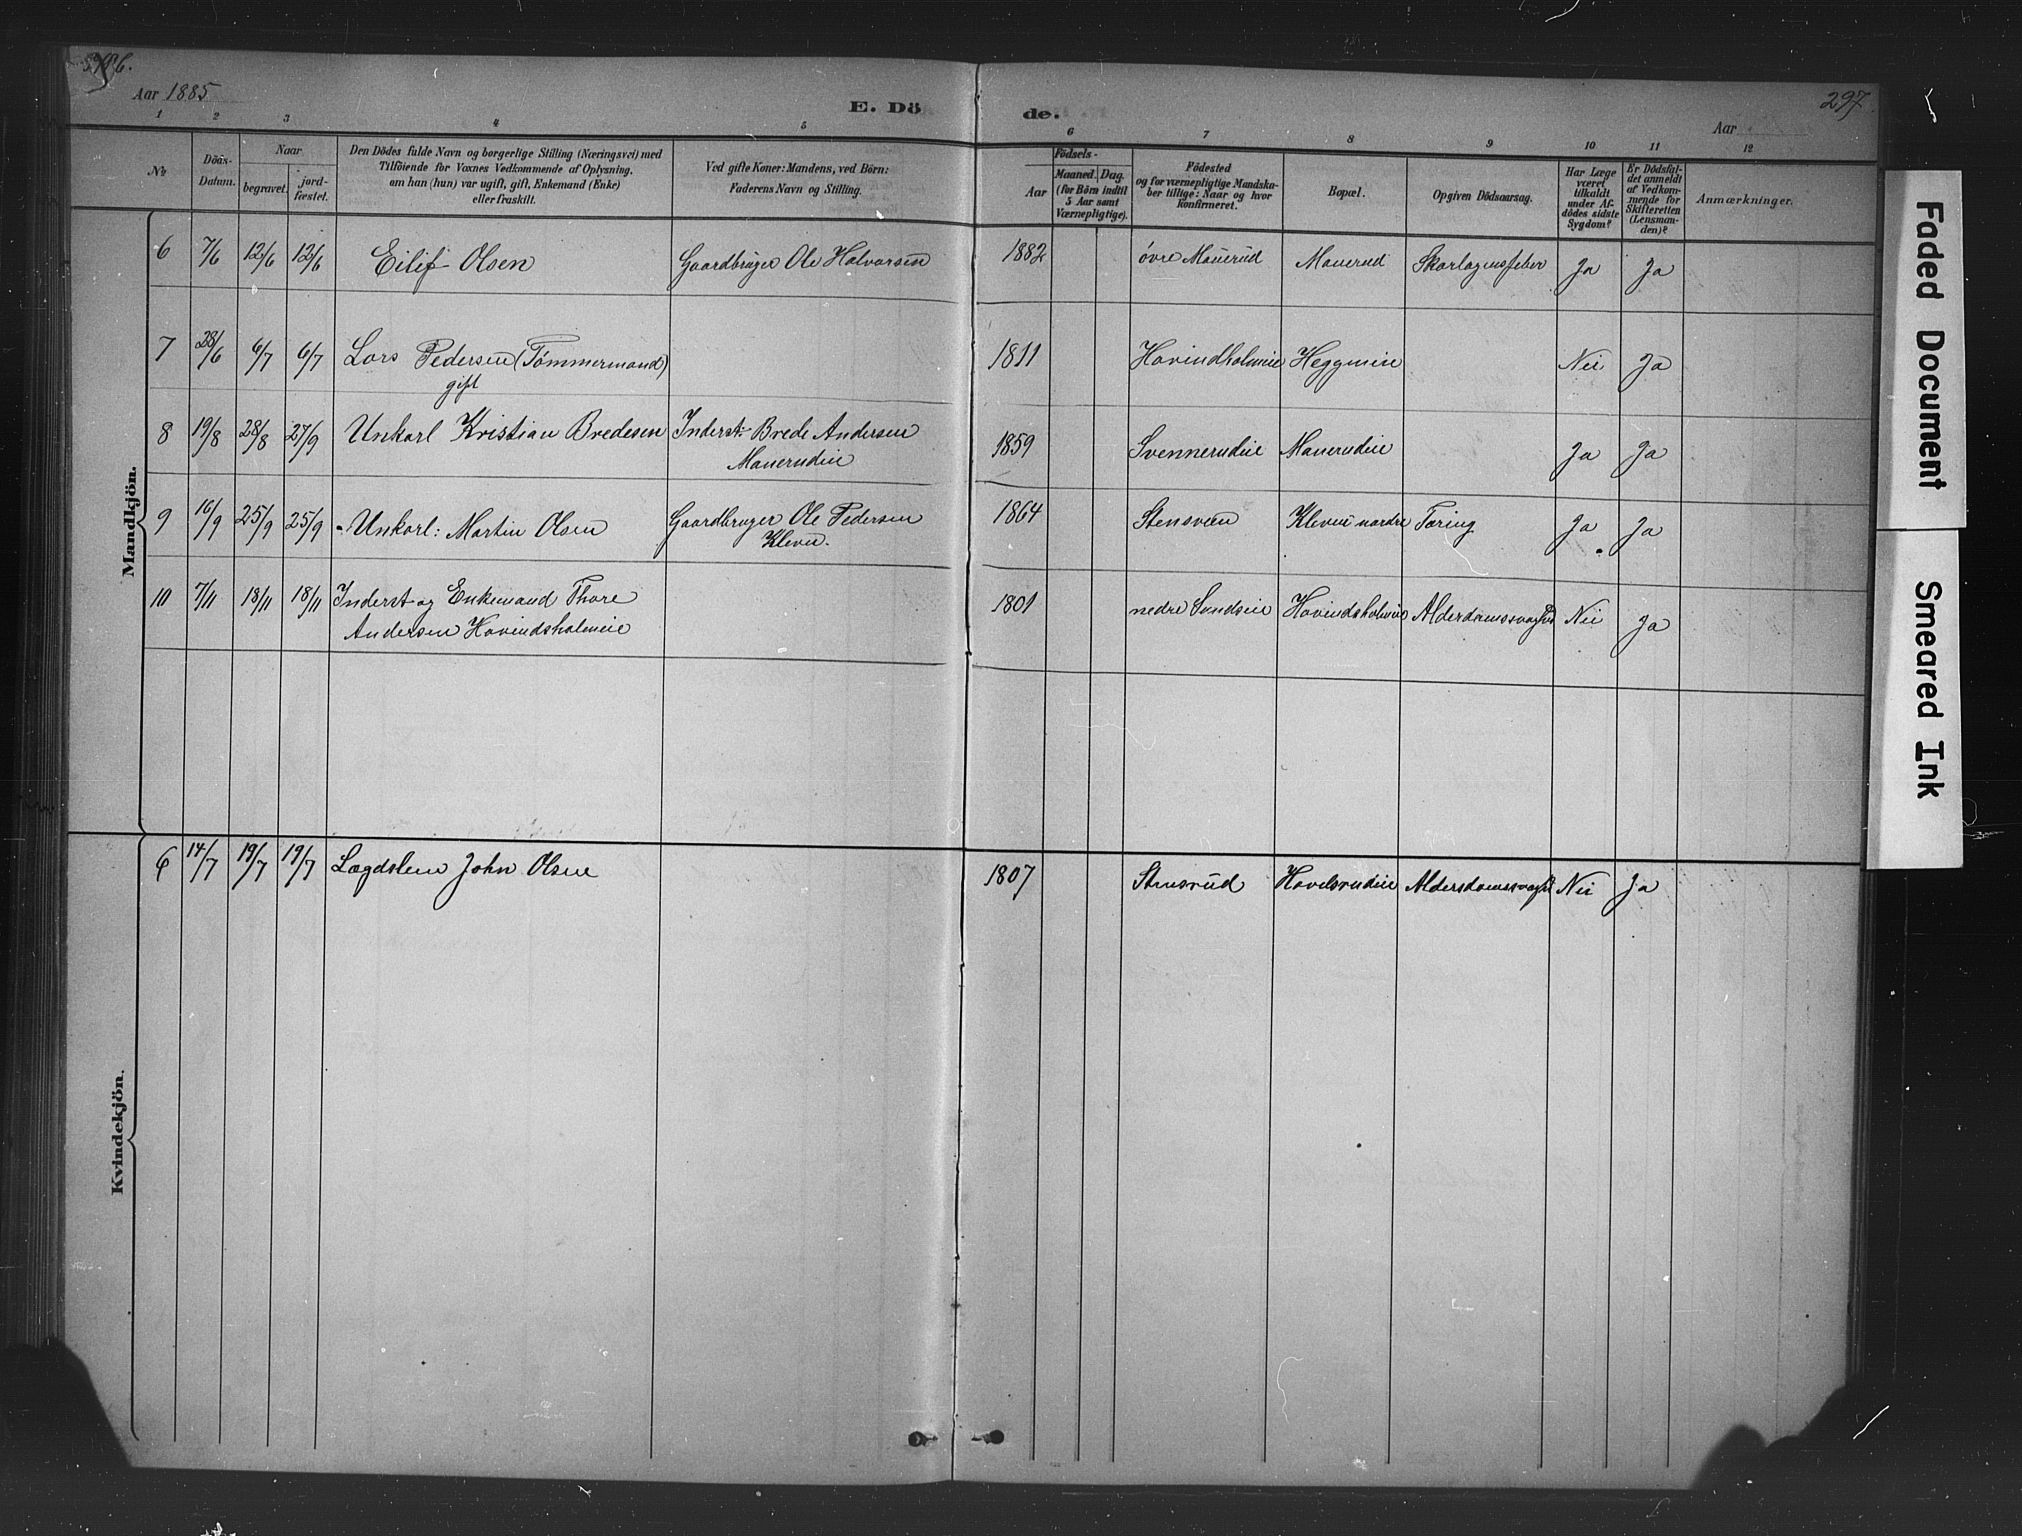 296.
Aar 1885
E. Dö
de.
297
Aar
1 2 3 4 5 6 7 8 9 10 11 12
No
Döds-
Datum.
Naar
begravet.
jord-
fæstet.
Den Dödes fulde Navn og borgerlige Stilling (Næringsvei) med
Tilföiende for Voxnes Vedkommende af Oplysning,
om han (hun) var ugift, gift, Enkemand (Enke)
eller fraskilt.
Ved gifte Koner: Mandens, ved Börn:
Faderens Navn og Stilling.
Födsels-
Aar
Maaned. Dag.
(for Börn indtil
5 Aar samt
Værnepligtige).
Födested
og for værnepligtige Mandska-
ber tillige: Naar og hvor
konfirmeret.
Bopæl.
Opgiven Dödsaarsag.
Har Læge
været
tilkaldt
under Af-
dödes sidste
Sygdom?
Er Dödsfal-
det anmeldt
af Vedkom-
mende for
Skifteretten
(Lensman-
den)?
Anmærkninger.
Mandkjön.
6 7/6 12/6 12/6 Eilif Olsen Gaardbruger Ole Halvorsen 1882 øvre Mauerud Mauerud Skarlagensfeber Ja Ja
7 28/6 6/7 6/7 Lars Pedersen (Tømmermand) 1811 Hovindholmeie Heggmeie Nei Ja
gift
8 19/8 28/8 27/9 Unkarl Kristian Bredesen Inderst: Brede Andersen 1859 Svennerudeie Mauerudeie Ja Ja
Mauerudeie
9 16/9 25/9 25/9 Unkarl: Martin Olsen Gaardbruger Ole Pedersen 1864 Stensveen Kleven nordre Tæring Ja Ja
Kleven.
10 7/11 18/11 18/11 Inderst og Enkemand Thore 1801 nedre Sundseie Hovindsholmeie Alderdomssvaghed Nei Ja
Andersen Hovindsholmeie
Kvindekjön.
6 14/7 19/7 19/7 Lægdslem John Olsen 1807 Stensrud Hovelsrudeie Aldersdomssvaghed Nei Ja
Faded Document
Smeared Ink